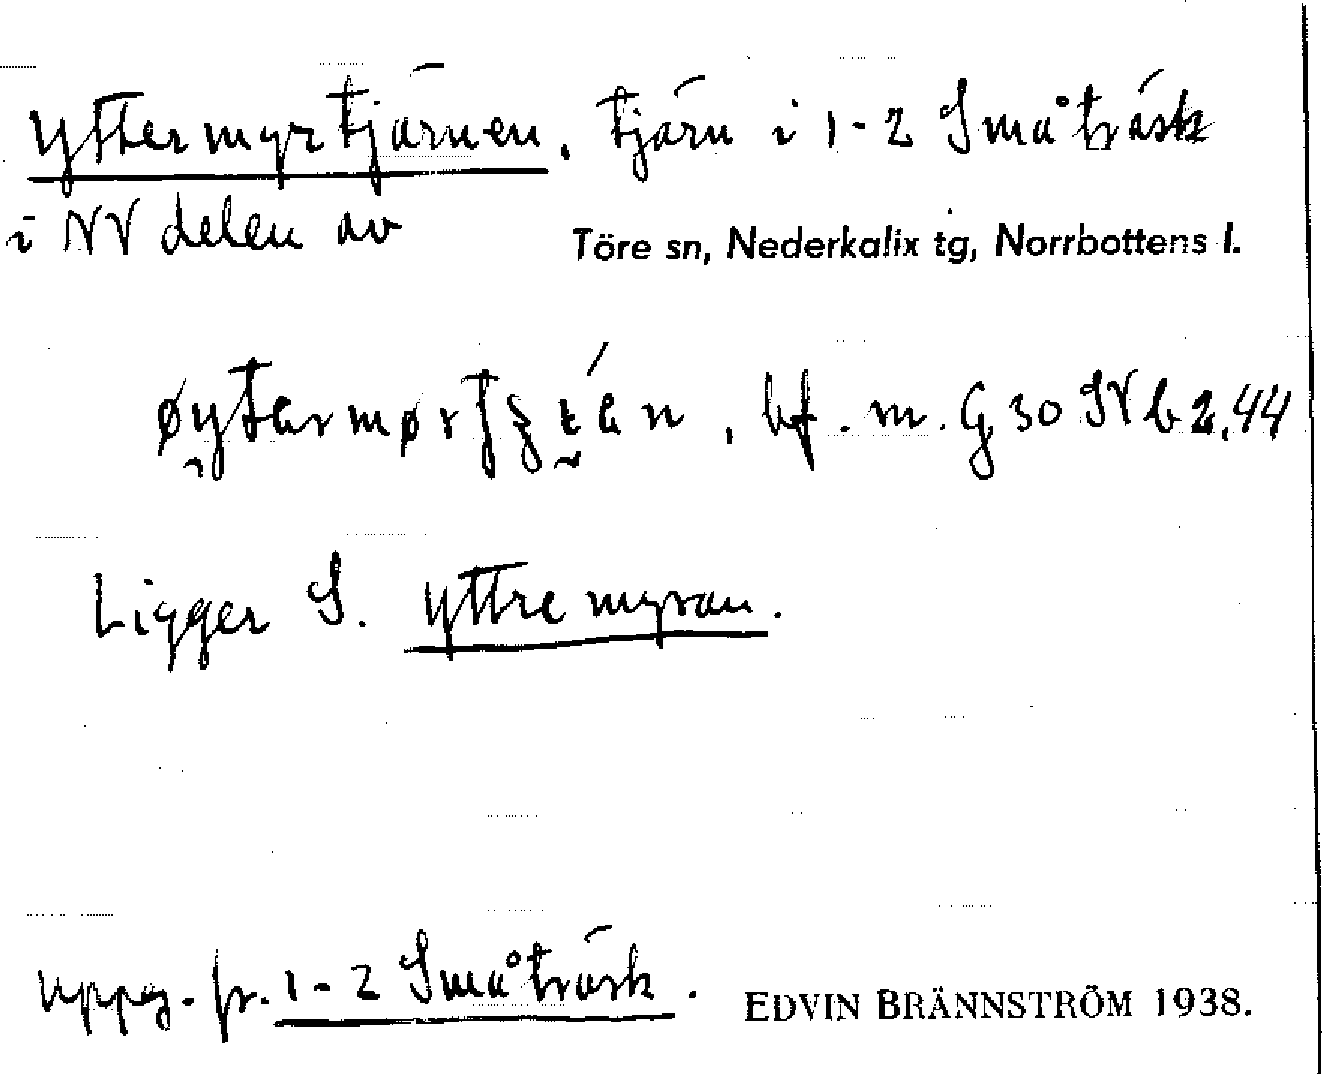 Yttermyrtjärnen. tjärn i 1-2 Småträsk
i NV delen av
Töre sn, Nederkalix tg, Norrbottens l.
bf. m. G 30 SV b 2,44
Ligger S. Yttre myran.
Uppg. fr. 1-2 Småträsk.
EDVIN BRÄNNSTRÖM 1938.